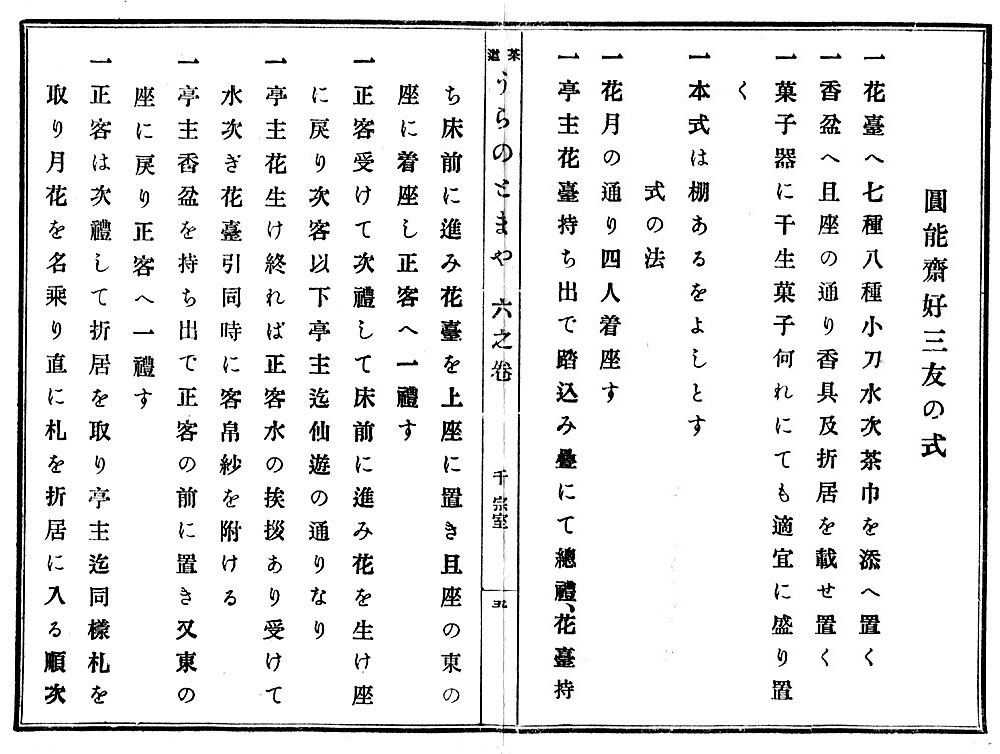 圓能齋好三友の式
一花臺へ七種八種小刀水次茶巾を添へ置く
一香盆へ且座の通り香具及折居を載せ置く
一菓子器に干生菓子何れにても適宜に盛り置
く
一本式は棚あるをよしとす
式の法
一花月の通り四人着座す
一亭主花臺持ち出で踏込み疊にて總禮、花臺持
茶道
うらのとまや 六之卷
千宗室
五
ち床前に進み花臺を上座に置き且座の東の
座に着座し正客へ一禮す
一正客受けて次禮して床前に進み花を生け座
に戻り次客以下亭主迄仙遊の通りなり
一亭主花生け終れば正客水の挨拶あり受けて
水次ぎ花臺引同時に客帛紗を附ける
一亭主香盆を持ち出で正客の前に置き又東の
座に戻り正客へ一禮す
一正客は次禮して折居を取り亭主迄同樣札を
取り月花を名乘り直に札を折居に入る順次